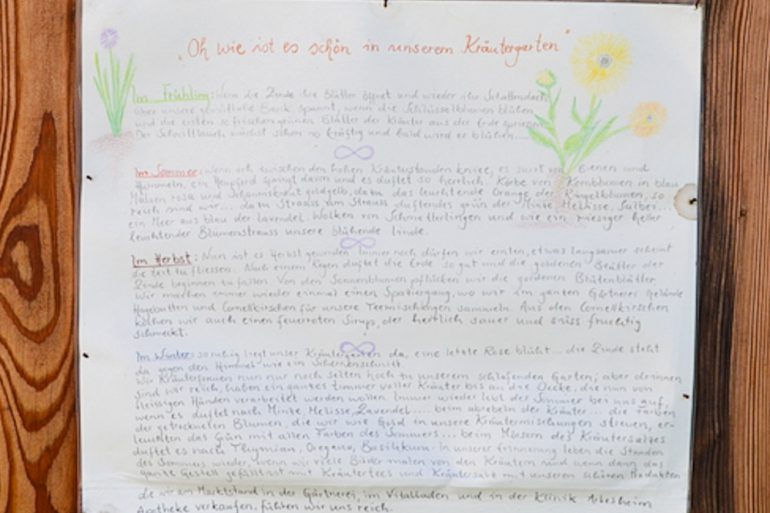 "Oh wie ist es schön in unserem Kräutergarten"
Im Frühling: Wenn die Linde ihre Blätter öffnet und wieder ihr Schattendach
über unsere gemütliche Bank spannt, wenn die Schlüsselblumen blühen
und die ersten so frischen grünen Blätter der Kräuter aus der Erde spriessen
Der Schnittlauch wächst schon so kräftig und bald wird er blühen
Im Sommer: wenn ich zwischen den hohen Kräuterstauden kniee, es surrt von Bienen und
Hummeln, ein Heupferd springt davon und es duftet so herrlich Körbe von Kornblumen in blau
Malven rosa und Johanniskraut goldgelb, dazu das leuchtende Orange der Ringelblumen, so
reich sind wir... dazu Strauss um Strauss duftendes grün der Minze, Melisse, Salbei..
ein Meer aus blau der Lavendel. Wolken von Schmetterlingen und wie ein riesiger heller
leuchtender Blumenstrauss unsere blühende Linde.
Im Herbst: Nun ist es Herbst geworden Immer noch dürfen wir ernten, etwas langsamer scheint
die Zeit zu fliessen. Nach einem Regen duftet die Erde so gut und die goldenen Blätter der
Linde beginnen zu fallen Von den Sonnenblumen pflücken wir die goldenen Blütenblätter
Wir machen immer wieder einmal einen Spaziergang, wo wir im ganzen Gärtnerei Gelände
Hagebutten und Cornelkirschen für unsere Teemischungen sammeln. Aus den Cornelkirschen
kochen wir auch einen feuerroten Sirup, der herrlich sauer und süss fruchtig
schmeckt.
Im Winter: so ruhig liegt unser Kräutergarten da, eine letzte Rose blüht... die Linde steht
da gegen den Himmel wie ein Scherenschnitt.
Wir Kräuterfrauen nun nur noch selten hoch zu unserem schlafenden Garten, aber drinnen
sind wir reich, haben ein ganzes Zimmer voller Kräuter bis an die Decke, die nun von
fleissigen Händen verarbeitet werden wollen Immer wieder lebt der Sommer bei uns auf,
wenn es duftet nach Minze, Melisse, Lavendel.... beim abrebeln der Kräuter... die Farben
der getrockneten Blumen, die wir wie Gold in unsere Kräutermischungen streuen, er-
leuchten das Grün mit allen Farben des Sommers... beim Mörsern des Kräutersalzes
duftet es nach Thymian, Oregano, Basilikum. In unserer Erinnerung leben die Stunden
des Sommers wieder, wenn wir viele Bilder malen von den Kräutern und wenn dann das
ganze Gestell gefüllt ist mit Kräutertees und Kräutersalz mit unseren schönen Produkten
die wir am Marktstand in der Gärtnerei, im Vitalladen und in der Klinik Arlesheim
Apotheke verkaufen, fühlen wir uns reich.